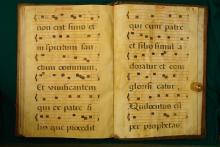 non erit finis et
in spiritum san
ctum dominum,
Et vivificantem
qui ex patre fi
lio que procedit
qui cum patre
et filio simul a
doratur et con
glorificatur,
Qui locutus est
per prophetas